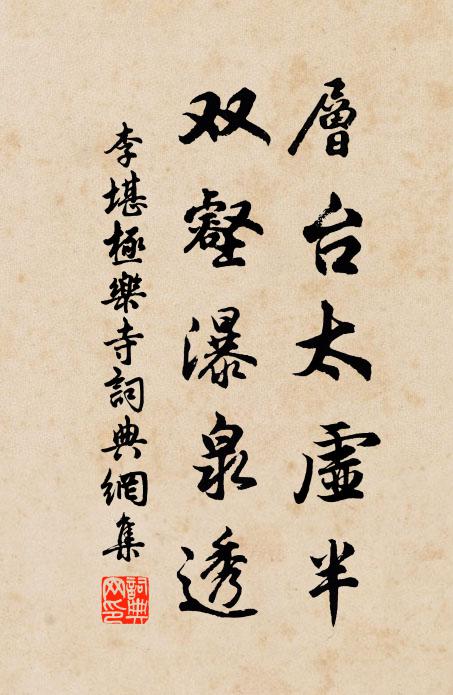 層台太虛半
双壑瀑泉透
李堪極樂寺詞典網集
詞典網印